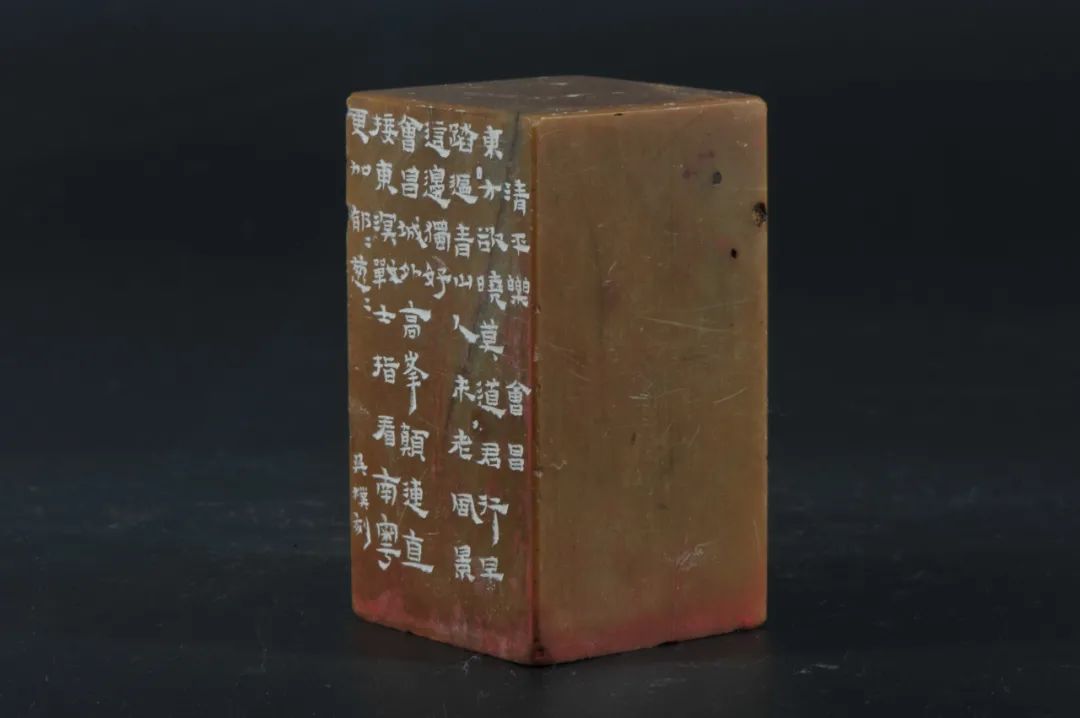 清平樂 會昌
東方欲曉莫道君行早
踏遍青山人未老風景
這邊獨好
會昌城外高峯顛連直
接東溟戰士指看南粵
更加郁〻葱〻
吳樸刻